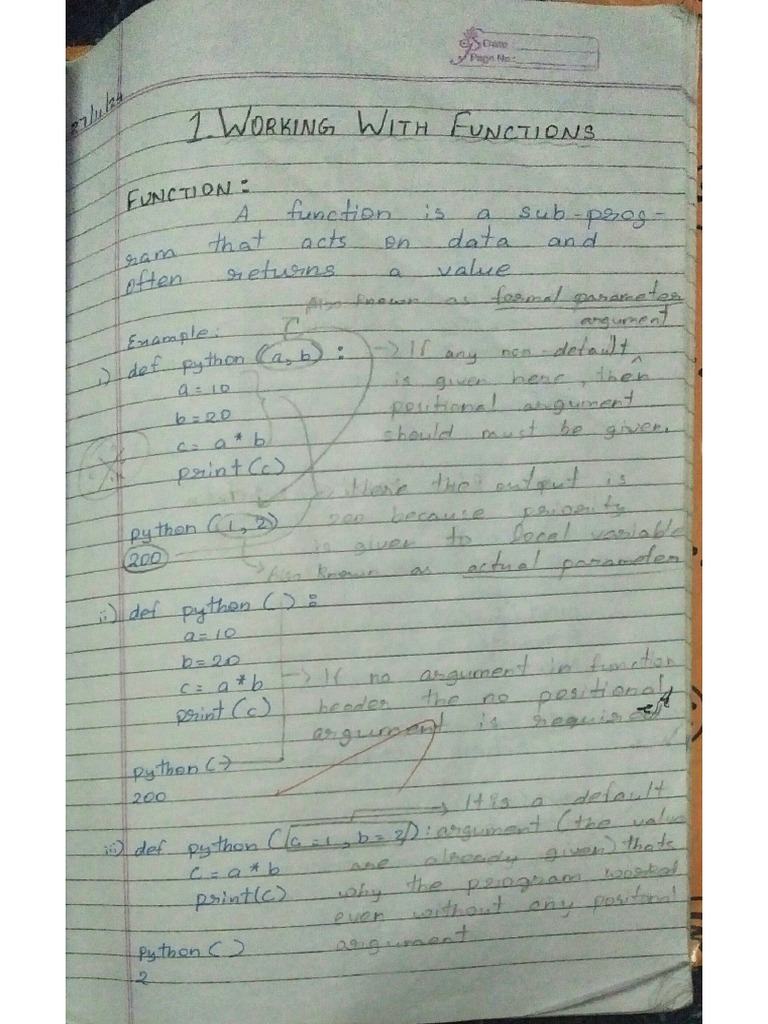 Date
Page No:
27/11/24
1. WORKING WITH FUNCTIONS
FUNCTION:
A function is a sub-prog-
ram that acts on data and
often returns a value
Also known as formal parameter
argument
Example:
i) def python (a, b) :
→ If any non-default
a=10
is given here, then
b=20
positional argument
c= a * b
should must be given.
print(c)
Here the output is
python (1, 2)
200 because priority
is given to local variable
200
→ Also known as actual parameter
ii) def python ( ) :
a=10
b=20
c= a * b
→ If no argument in function
header the no positional
print (c)
argument is required
python ( )
200
→ It is a default
iii) def python ( a=1, b=2 ) :
argument (the value
c = a * b
are already given) thats
print(c)
why the program worked
even without any positional
python ( )
argument
2